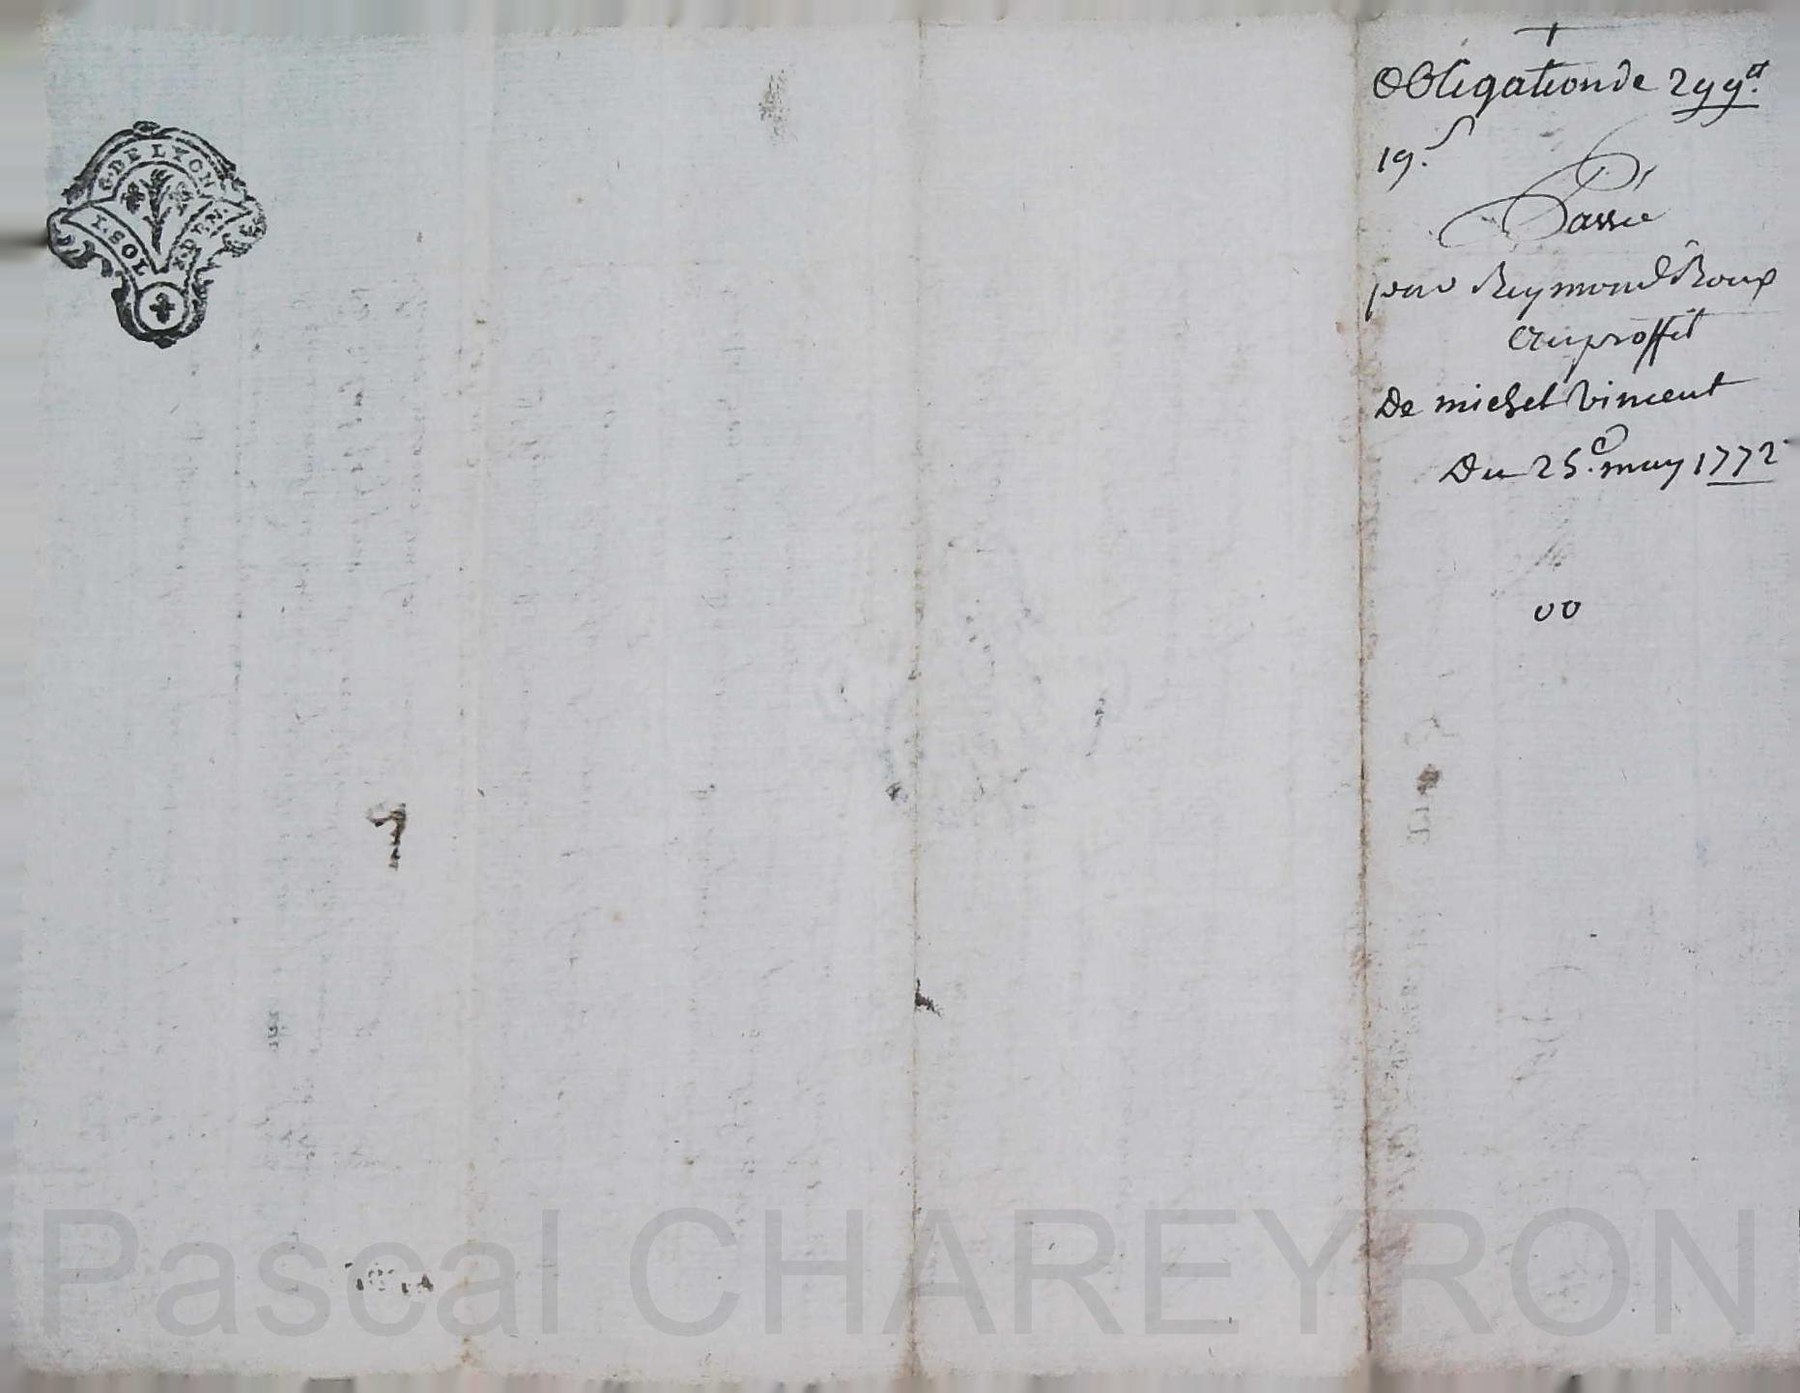 G. DE LYON
1. SOL 4. DEN
+
Obligation de 299.lt
19.s
Passée
par Reymond Roux
au proffit
De michel vincent
Du 25.e may 1772
00
Pascal CHAREYRON